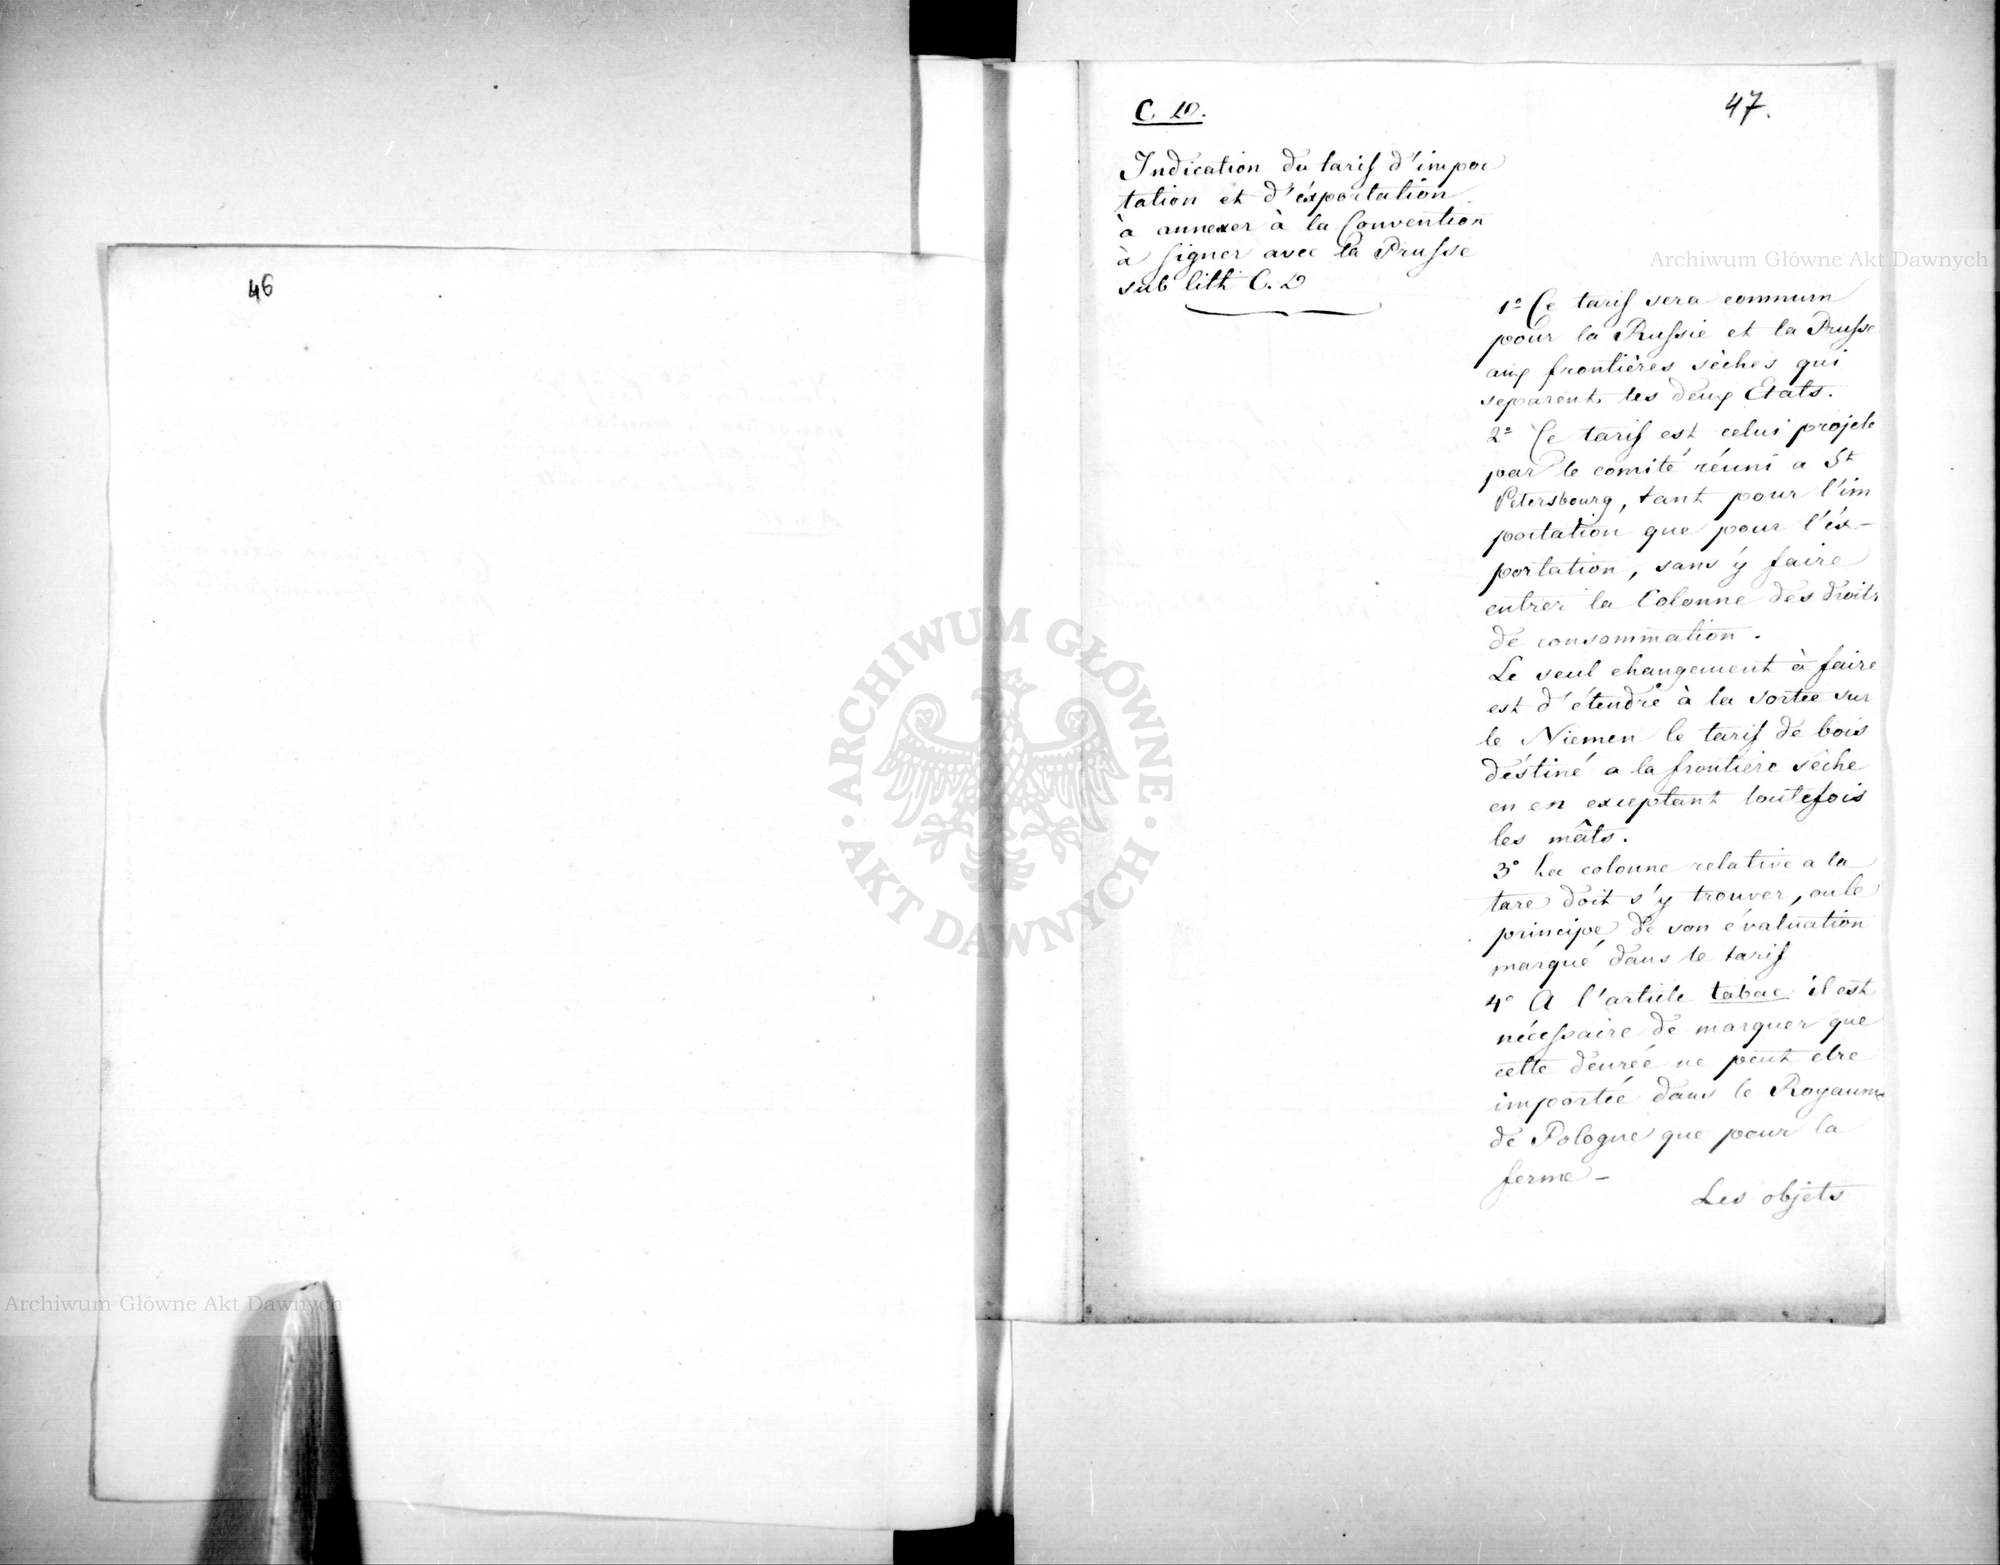 46
C D.
47.
Indication du tarif d'impor
tation et d'éxportation
à annexer à la Convention
à signer avec la Prusse
sub litt C. D
1º Ce tarif sera commun
pour la Russie et la Prusse
aux frontières sèches qui
separent les deux Etats.
2º Ce tarif est celui projeté
par le comité réuni a St
Petersbourg, tant pour l'im
portation que pour l'éx-
portation, sans y faire
entrer la Colonne des droits
de consommation.
Le seul changement à faire
est d'étendre à la sortee sur
le Niemen le tarif de bois
déstiné a la frontiere sèche
en en exceptant toutefois
les mâts.
3º La colonne relative a la
tare doit s'y trouver, ou le
principe de son évaluation
marqué dans le tarif
4º A l'article tabac il est
nécessaire de marquer que
cette denrée ne peut etre
importée dans le Royaume
de Pologne que pour la
ferme -
Les objets
Archiwum Główne Akt Dawnych
ARCHIWUM GŁÓWNE
AKT DAWNYCH
Archiwum Główne Akt Dawnych